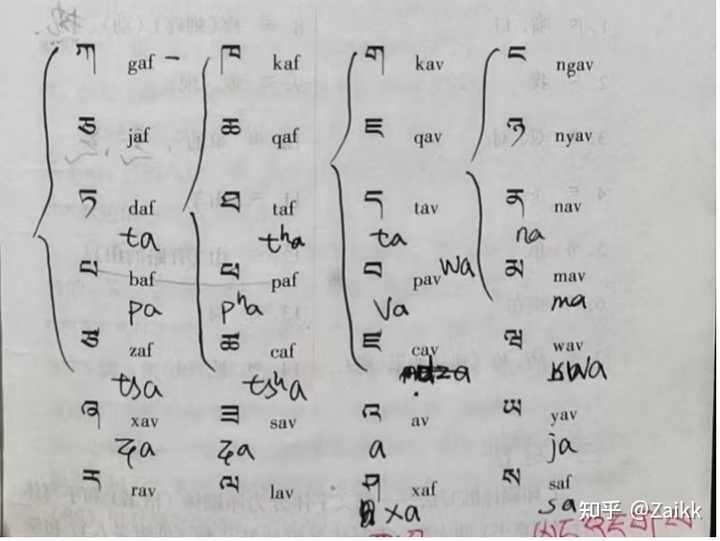 ཀ gaf ཁ kaf ག kav ང ngav
ཅ jaf ཆ qaf ཇ qav ཉ nyav
ཏ daf ཐ taf ད tav ན nav
ta tʰa ta na
པ baf ཕ paf བ pav wa མ mav
pa pʰa va ma
ཙ zaf ཚ caf ཛ cav ཝ wav
tsa tsʰa za ʁwa
ཞ xav ཟ sav འ av ཡ yav
ʑa ʑa a ja
ར rav ལ lav ཤ xaf ས saf
xa sa
知乎 @Zaikk